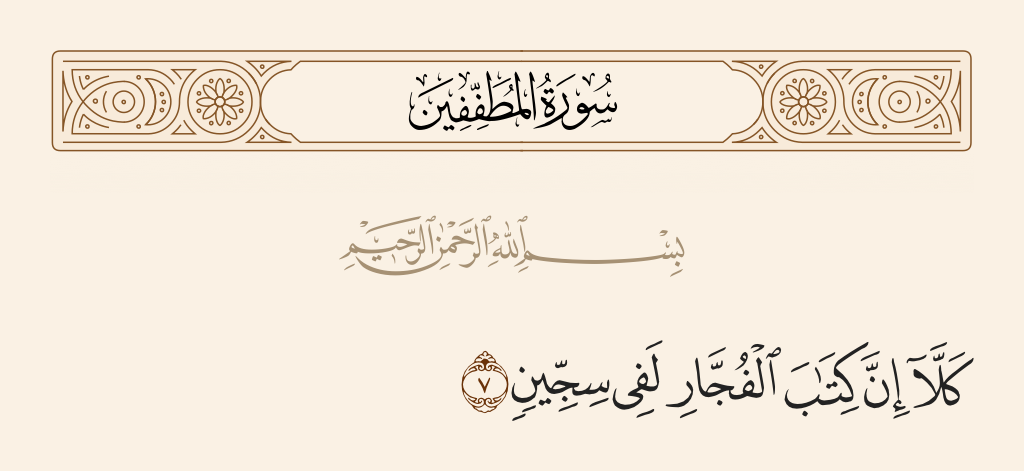 سُورَةُ المُطَفِّفِينَ
بِسْمِ ٱللَّهِ ٱلرَّحْمَٰنِ ٱلرَّحِيمِ
كَلَّآ إِنَّ كِتَٰبَ ٱلْفُجَّارِ لَفِى سِجِّينٍ ٧